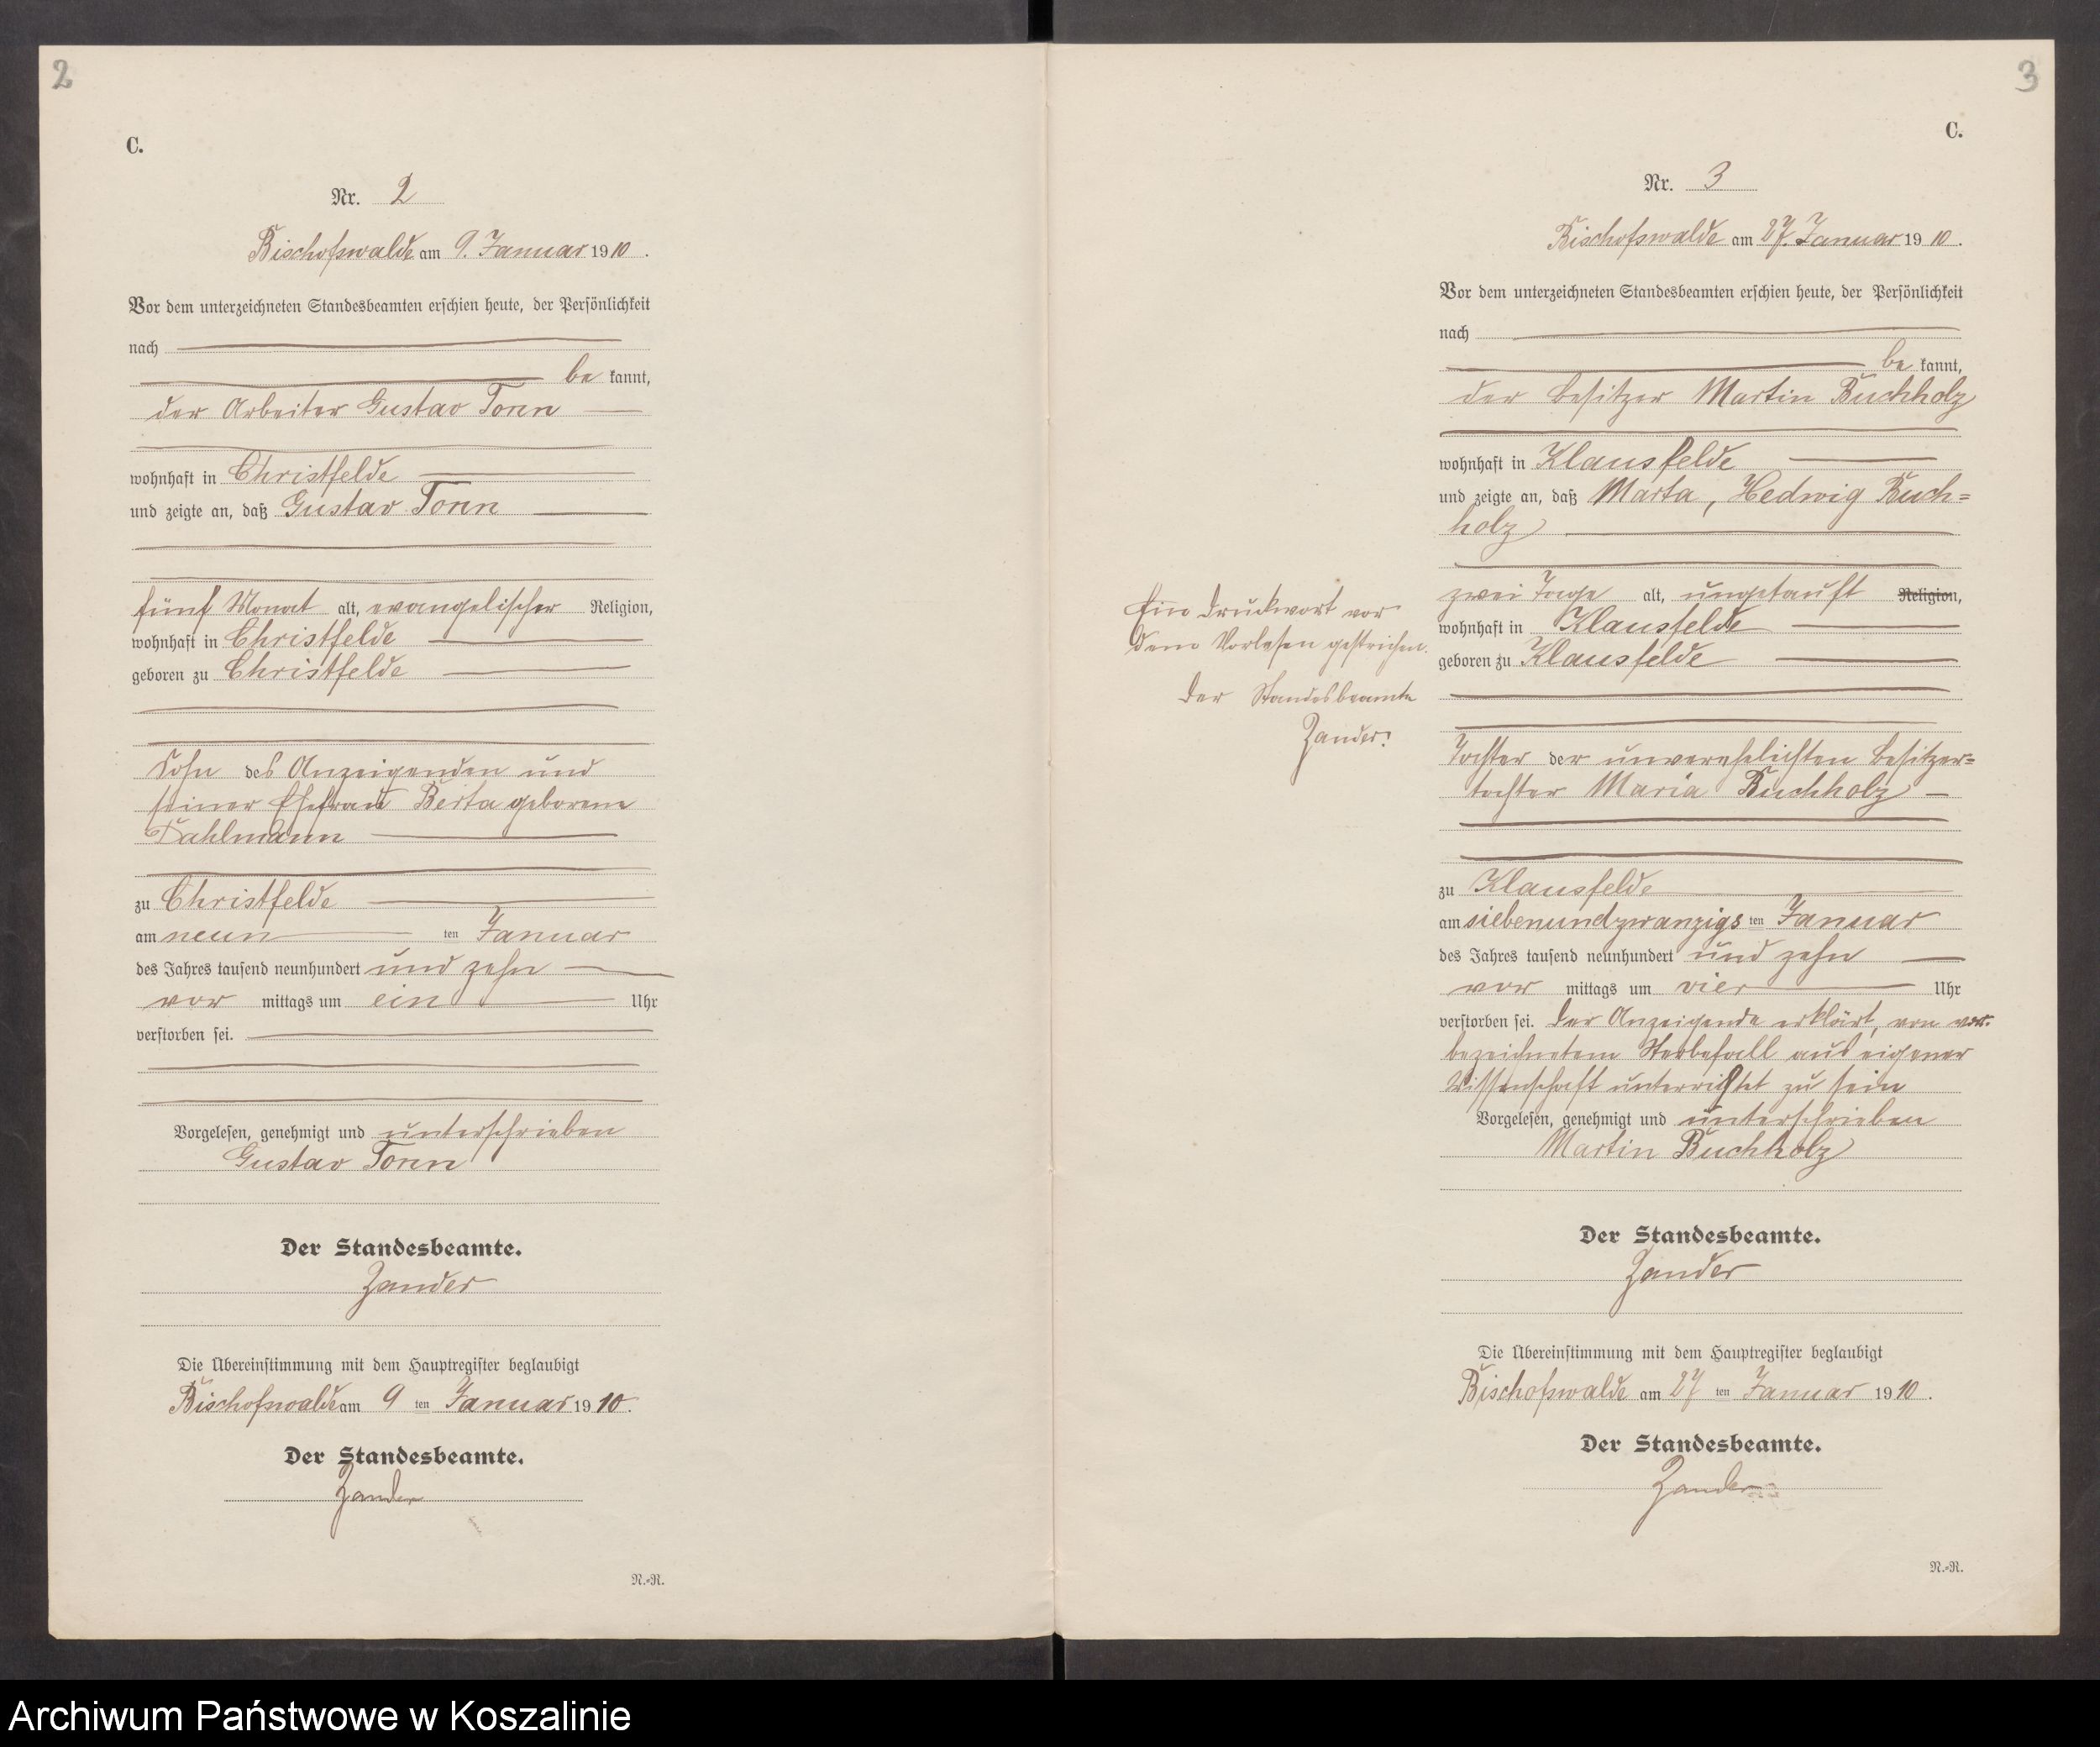 2
C.
Nr. 2
Bischofswalde am 9. Januar 1910.
Vor dem unterzeichneten Standesbeamten erschien heute, der Persönlichkeit
nach
be kannt,
der Arbeiter Gustav Tonn
wohnhaft in Christfelde
und zeigte an, daß Gustav Tonn
fünf Monat alt, evangelischer Religion,
wohnhaft in Christfelde
geboren zu Christfelde
Sohn des Anzeigenden und
seiner Ehefrau Berta geborene
Dahlmann
zu Christfelde
am neun ten Januar
des Jahres tausend neunhundert und zehn
vor mittags um ein Uhr
verstorben sei.
Vorgelesen, genehmigt und unterschrieben
Gustav Tonn
Der Standesbeamte.
Zander
Die Übereinstimmung mit dem Hauptregister beglaubigt
Bischofswalde am 9 ten Januar 1910.
Der Standesbeamte.
Zander
N.-R.
3
C.
Nr. 3
Bischofswalde am 27. Januar 1910.
Vor dem unterzeichneten Standesbeamten erschien heute, der Persönlichkeit
nach
be kannt,
der Besitzer Martin Buchholz
wohnhaft in Klausfelde
und zeigte an, daß Marta, Hedwig Buch=
holz
zwei Tage alt, ungetauft Religion,
wohnhaft in Klausfelde
geboren zu Klausfelde
Tochter der unverehelichten Besitzer=
tochter Maria Buchholz
zu Klausfelde
am siebenundzwanzigs ten Januar
des Jahres tausend neunhundert und zehn
vor mittags um vier Uhr
verstorben sei. Der Anzeigende erklärt, von vor.
bezeichnetem Sterbefall aus eigener
Wissenschaft unterrichtet zu sein
Vorgelesen, genehmigt und unterschrieben
Martin Buchholz
Der Standesbeamte.
Zander
Die Übereinstimmung mit dem Hauptregister beglaubigt
Bischofswalde am 27 ten Januar 1910.
Der Standesbeamte.
Zander
N.-R.
Ein Druckwort vor
dem Vorlesen gestrichen.
Der Standesbeamte
Zander.
Archiwum Państwowe w Koszalinie